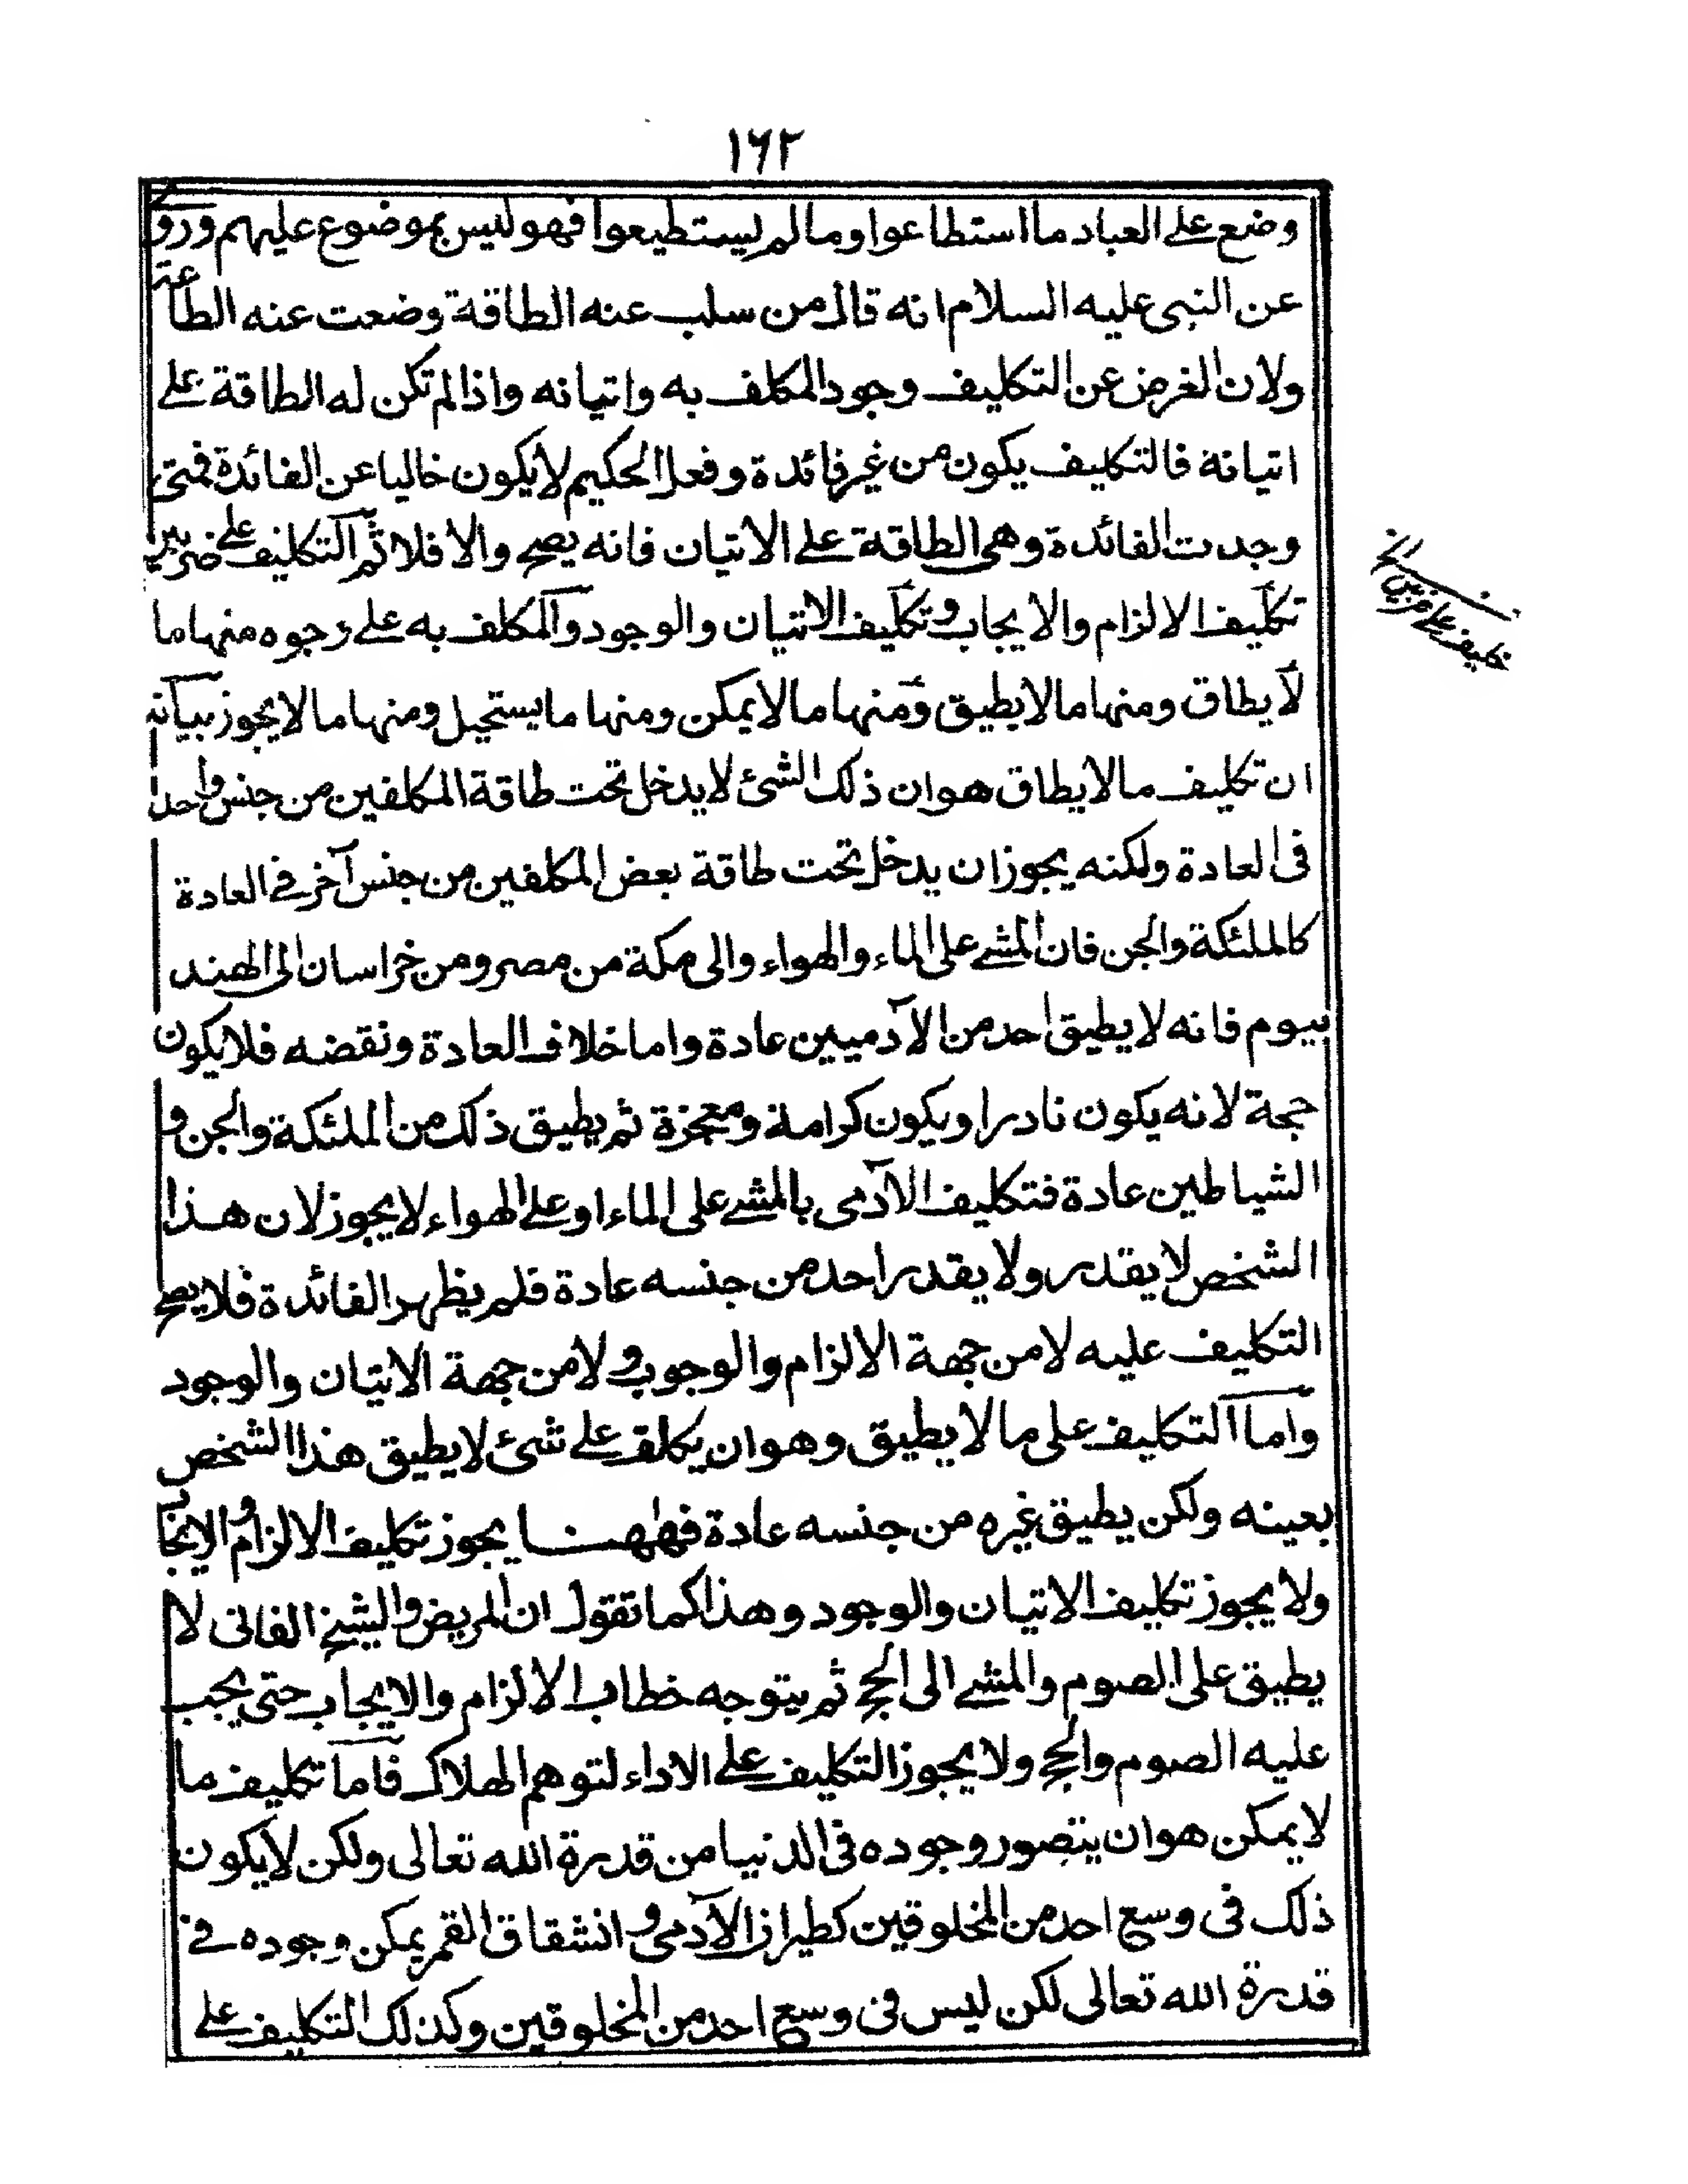 ١٦٢
وضع على العباد ما استطاعوا وما لم يستطيعوا فهو ليس بموضوع عليهم وروى
عن النبى عليه السلام انه قال من سلب عنه الطاقة وضعت عنه الطاعة
ولان الغرض عن التكليف وجود المكلف به واتيانه واذا لم تكن له الطاقة على
اتيانه فالتكليف يكون من غير فائدة وفعل الحكيم لا يكون خاليا عن الفائدة فمتى
وجدت الفائدة وهى الطاقة على الاتيان فانه يصح والا فلا ثم التكليف على ضربين
تكليف الالزام والايجاب وتكليف الاتيان والوجود والمكلف به على وجوه منها ما
لا يطاق ومنها ما لا يطيق ومنها ما لا يمكن ومنها ما يستحيل ومنها ما لا يجوز بيانه
ان تكليف ما لا يطاق هو ان ذلك الشئ لا يدخل تحت طاقة المكلفين من جنس واحد
فى العادة ولكنه يجوز ان يدخل تحت طاقة بعض المكلفين من جنس آخر فى العادة
كالملئكة والجن فان المشى على الماء والهواء والى مكة من مصر ومن خراسان الى الهند
بيوم فانه لا يطيق احد من الآدميين عادة واما خلاف العادة ونقضه فلا يكون
حجة لانه يكون نادرا ويكون كرامة ومعجزة ثم يطيق ذلك من الملئكة والجن و
الشياطين عادة فتكليف الآدمى بالمشى على الماء او على الهواء لا يجوز لان هذا
الشخص لا يقدر ولا يقدر احد من جنسه عادة فلم يظهر الفائدة فلا يصح
التكليف عليه لا من جهة الالزام والوجوب ولا من جهة الاتيان والوجود
واما التكليف على ما لا يطيق وهو ان يكلف على شئ لا يطيق هذا الشخص
بعينه ولكن يطيق غيره من جنسه عادة فههنا يجوز تكليف الالزام والايجاب
ولا يجوز تكليف الاتيان والوجود وهذا كما تقول ان المريض والشيخ الفانى لا
يطيق على الصوم والمشى الى الحج ثم يتوجه خطاب الالزام والايجاب حتى يجب
عليه الصوم والحج ولا يجوز التكليف على الاداء لتوهم الهلاك فاما تكليف ما
لا يمكن هو ان يتصور وجوده فى الدنيا من قدرة الله تعالى ولكن لا يكون
ذلك فى وسع احد من المخلوقين كطيران الآدمى وانشقاق القمر يمكن وجوده فى
قدرة الله تعالى لكن ليس فى وسع احد من المخلوقين وكذلك التكليف على
تكليف على ضربين